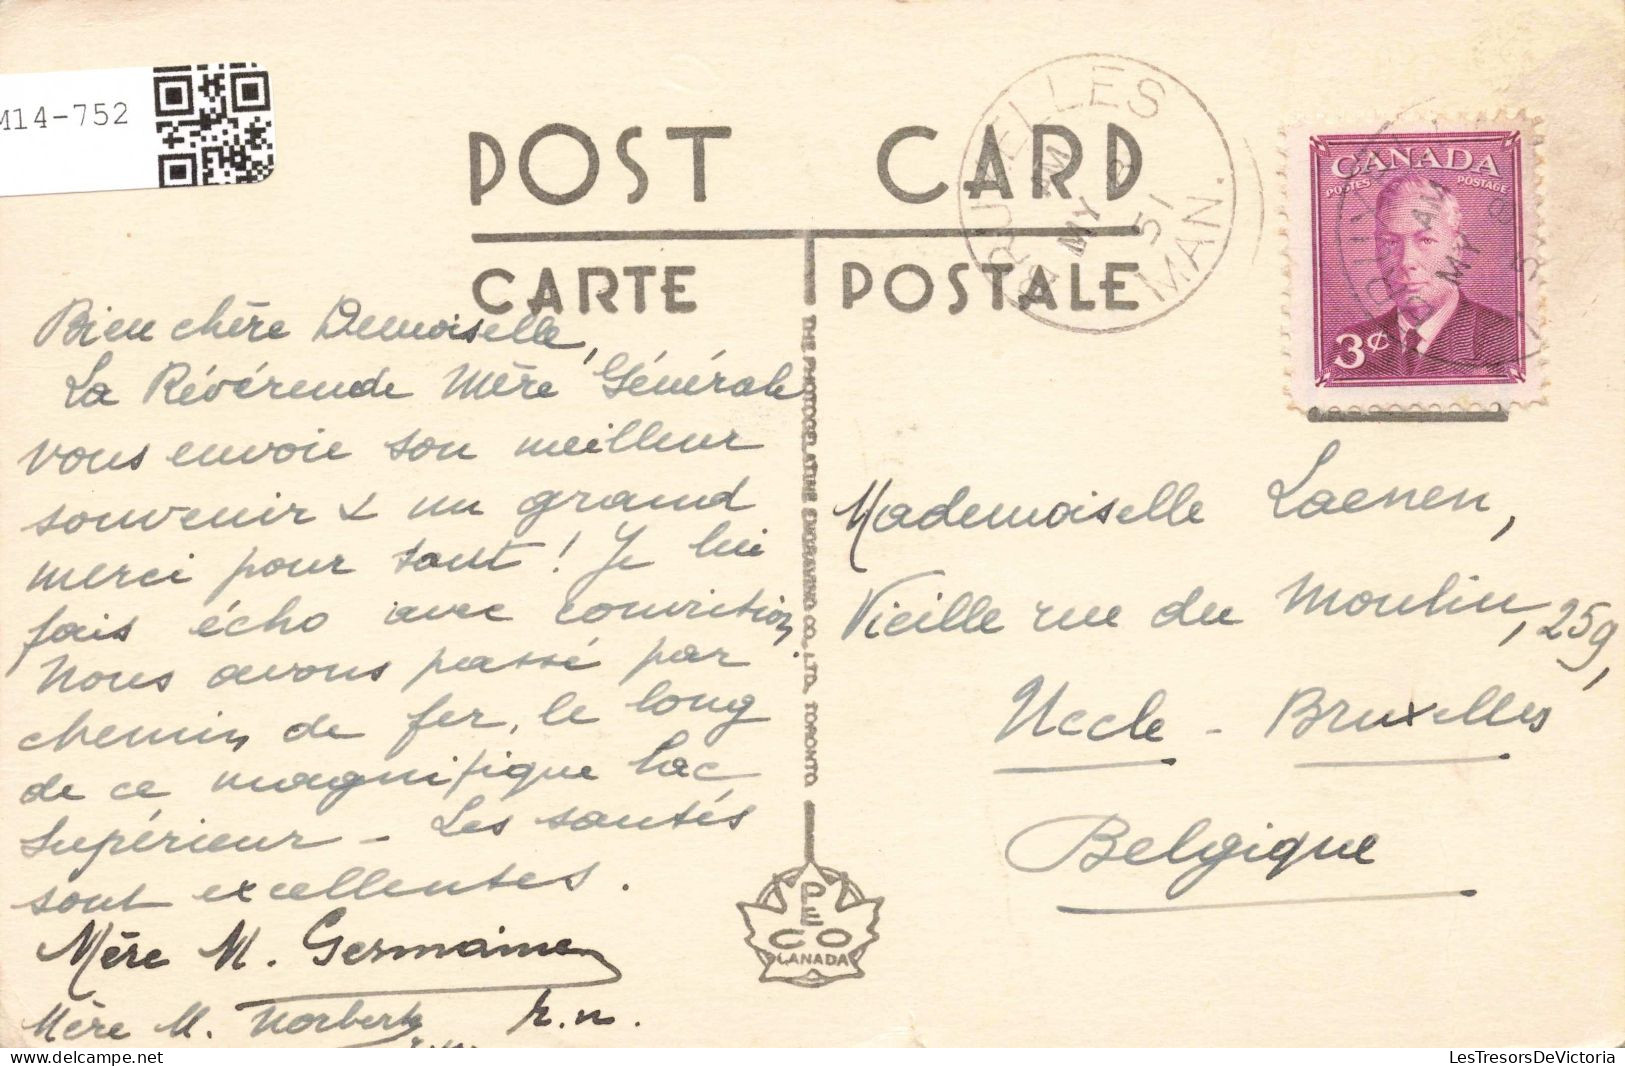 M14-752
POST CARD
CARTE POSTALE
BRUXELLES
AM
MY 8
51
MAN.
CANADA
POSTES POSTAGE
3¢
Bien chère Demoiselle,
La Révérende Mère Générale
vous envoie son meilleur
souvenir & un grand
merci pour tout ! Je lui
fais écho avec conviction.
Nous avons passé par
chemin de fer, le long
de ce magnifique Lac
Supérieur - Les santés
sont excellentes.
Mère M. Germaine
r.n.
Mère M. Norberte
THE PHOTOGELATINE ENGRAVING CO., LTD., TORONTO
PECO
CANADA
Mademoiselle Laenen,
Vieille rue du Moulin, 259,
Uccle - Bruxelles
Belgique
LesTresorsDeVictoria